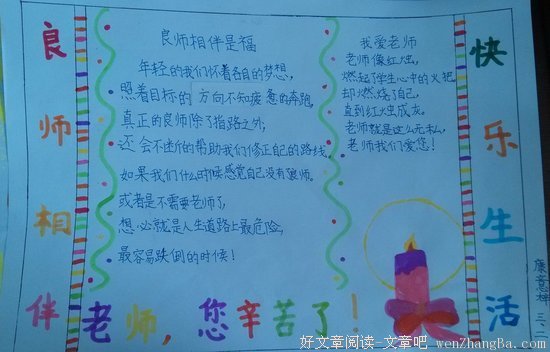 良师相伴
快乐生活
良师相伴是福
年轻的我们怀着各自的梦想,
照着目标的方向不知疲惫的奔跑,
真正的良师除了指路之外,
还会不断的帮助我们修正自己的路线,
如果我们什么时候感觉自己没有良师,
或者是不需要老师了,
想必就是人生道路上最危险,
最容易跌倒的时候!
我爱老师
老师像红烛,
燃起了学生心中的火把
却燃烧了自己,
直到红烛成灰。
老师就是这么无私,
老师我们爱您!
老师,您辛苦了!
三、二
好文章阅读-文章吧 wenZhangBa.com